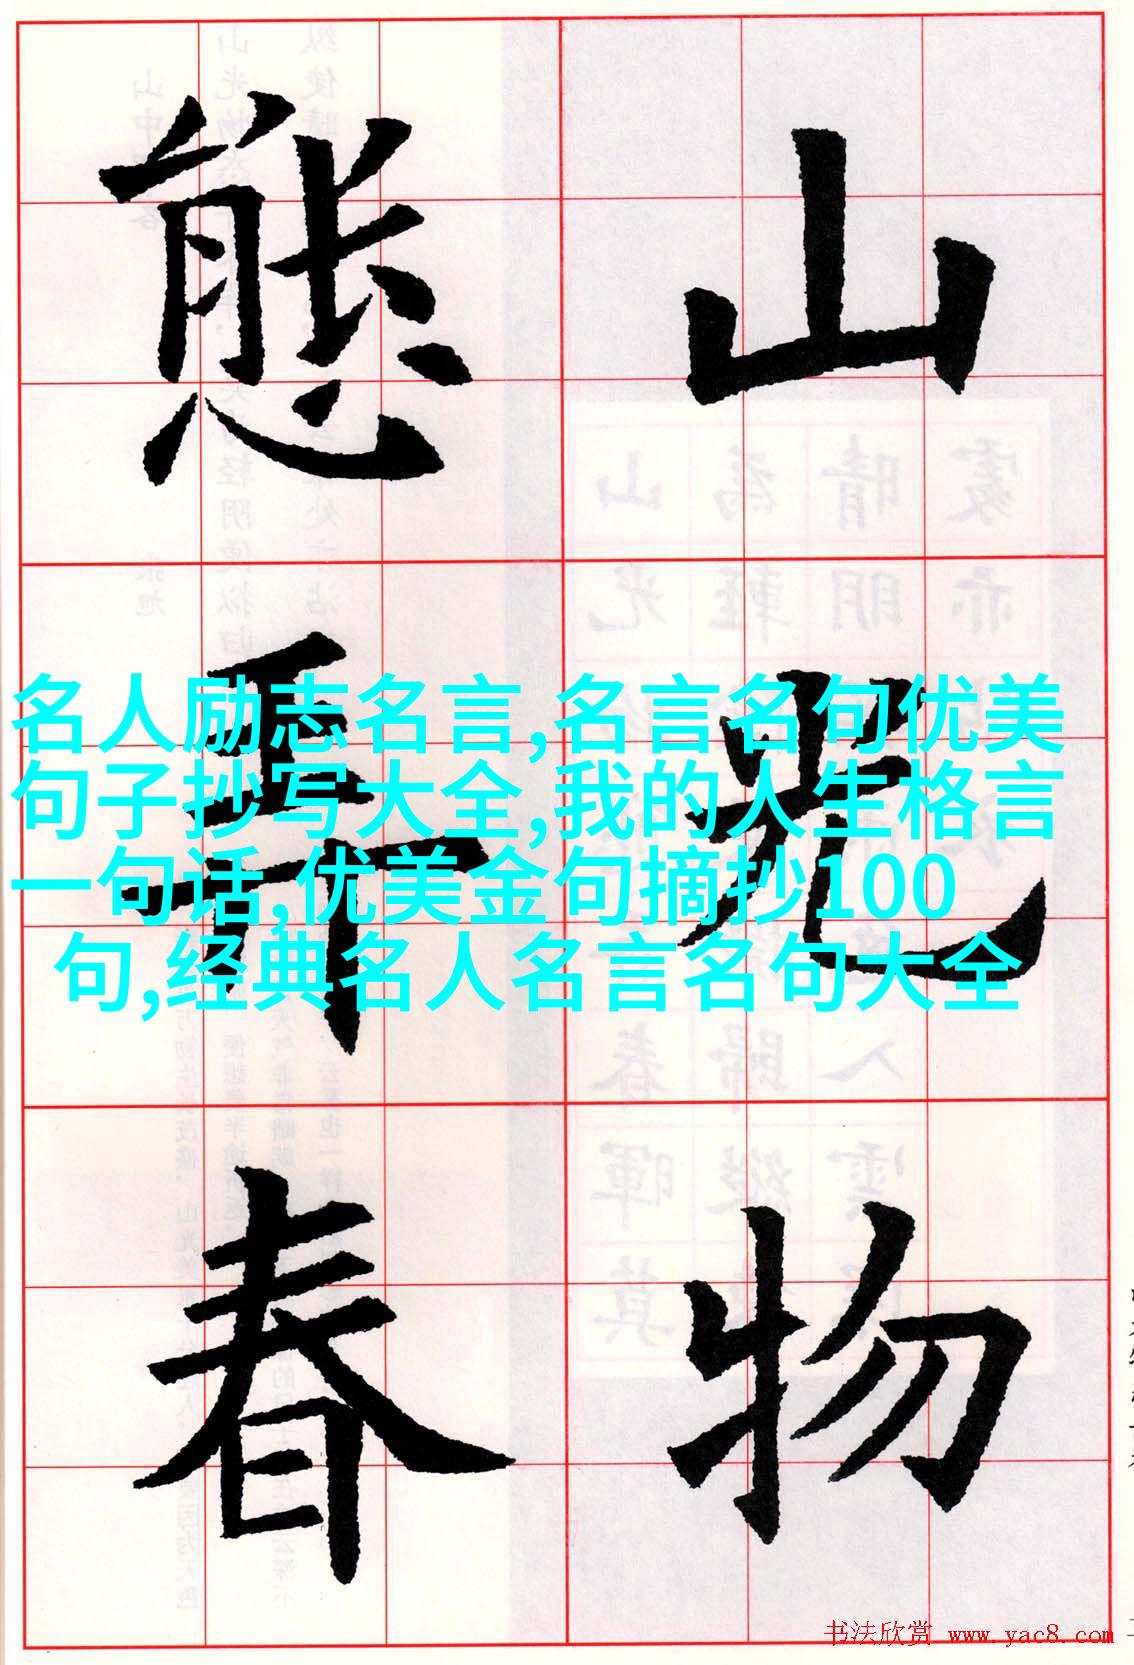 山光物
態弄春
名人励志名言,名言名句优美
句子抄写大全,我的人生格言
一句话,优美金句摘抄100
句,经典名人名言名句大全
书法欣赏 www.yac8.com